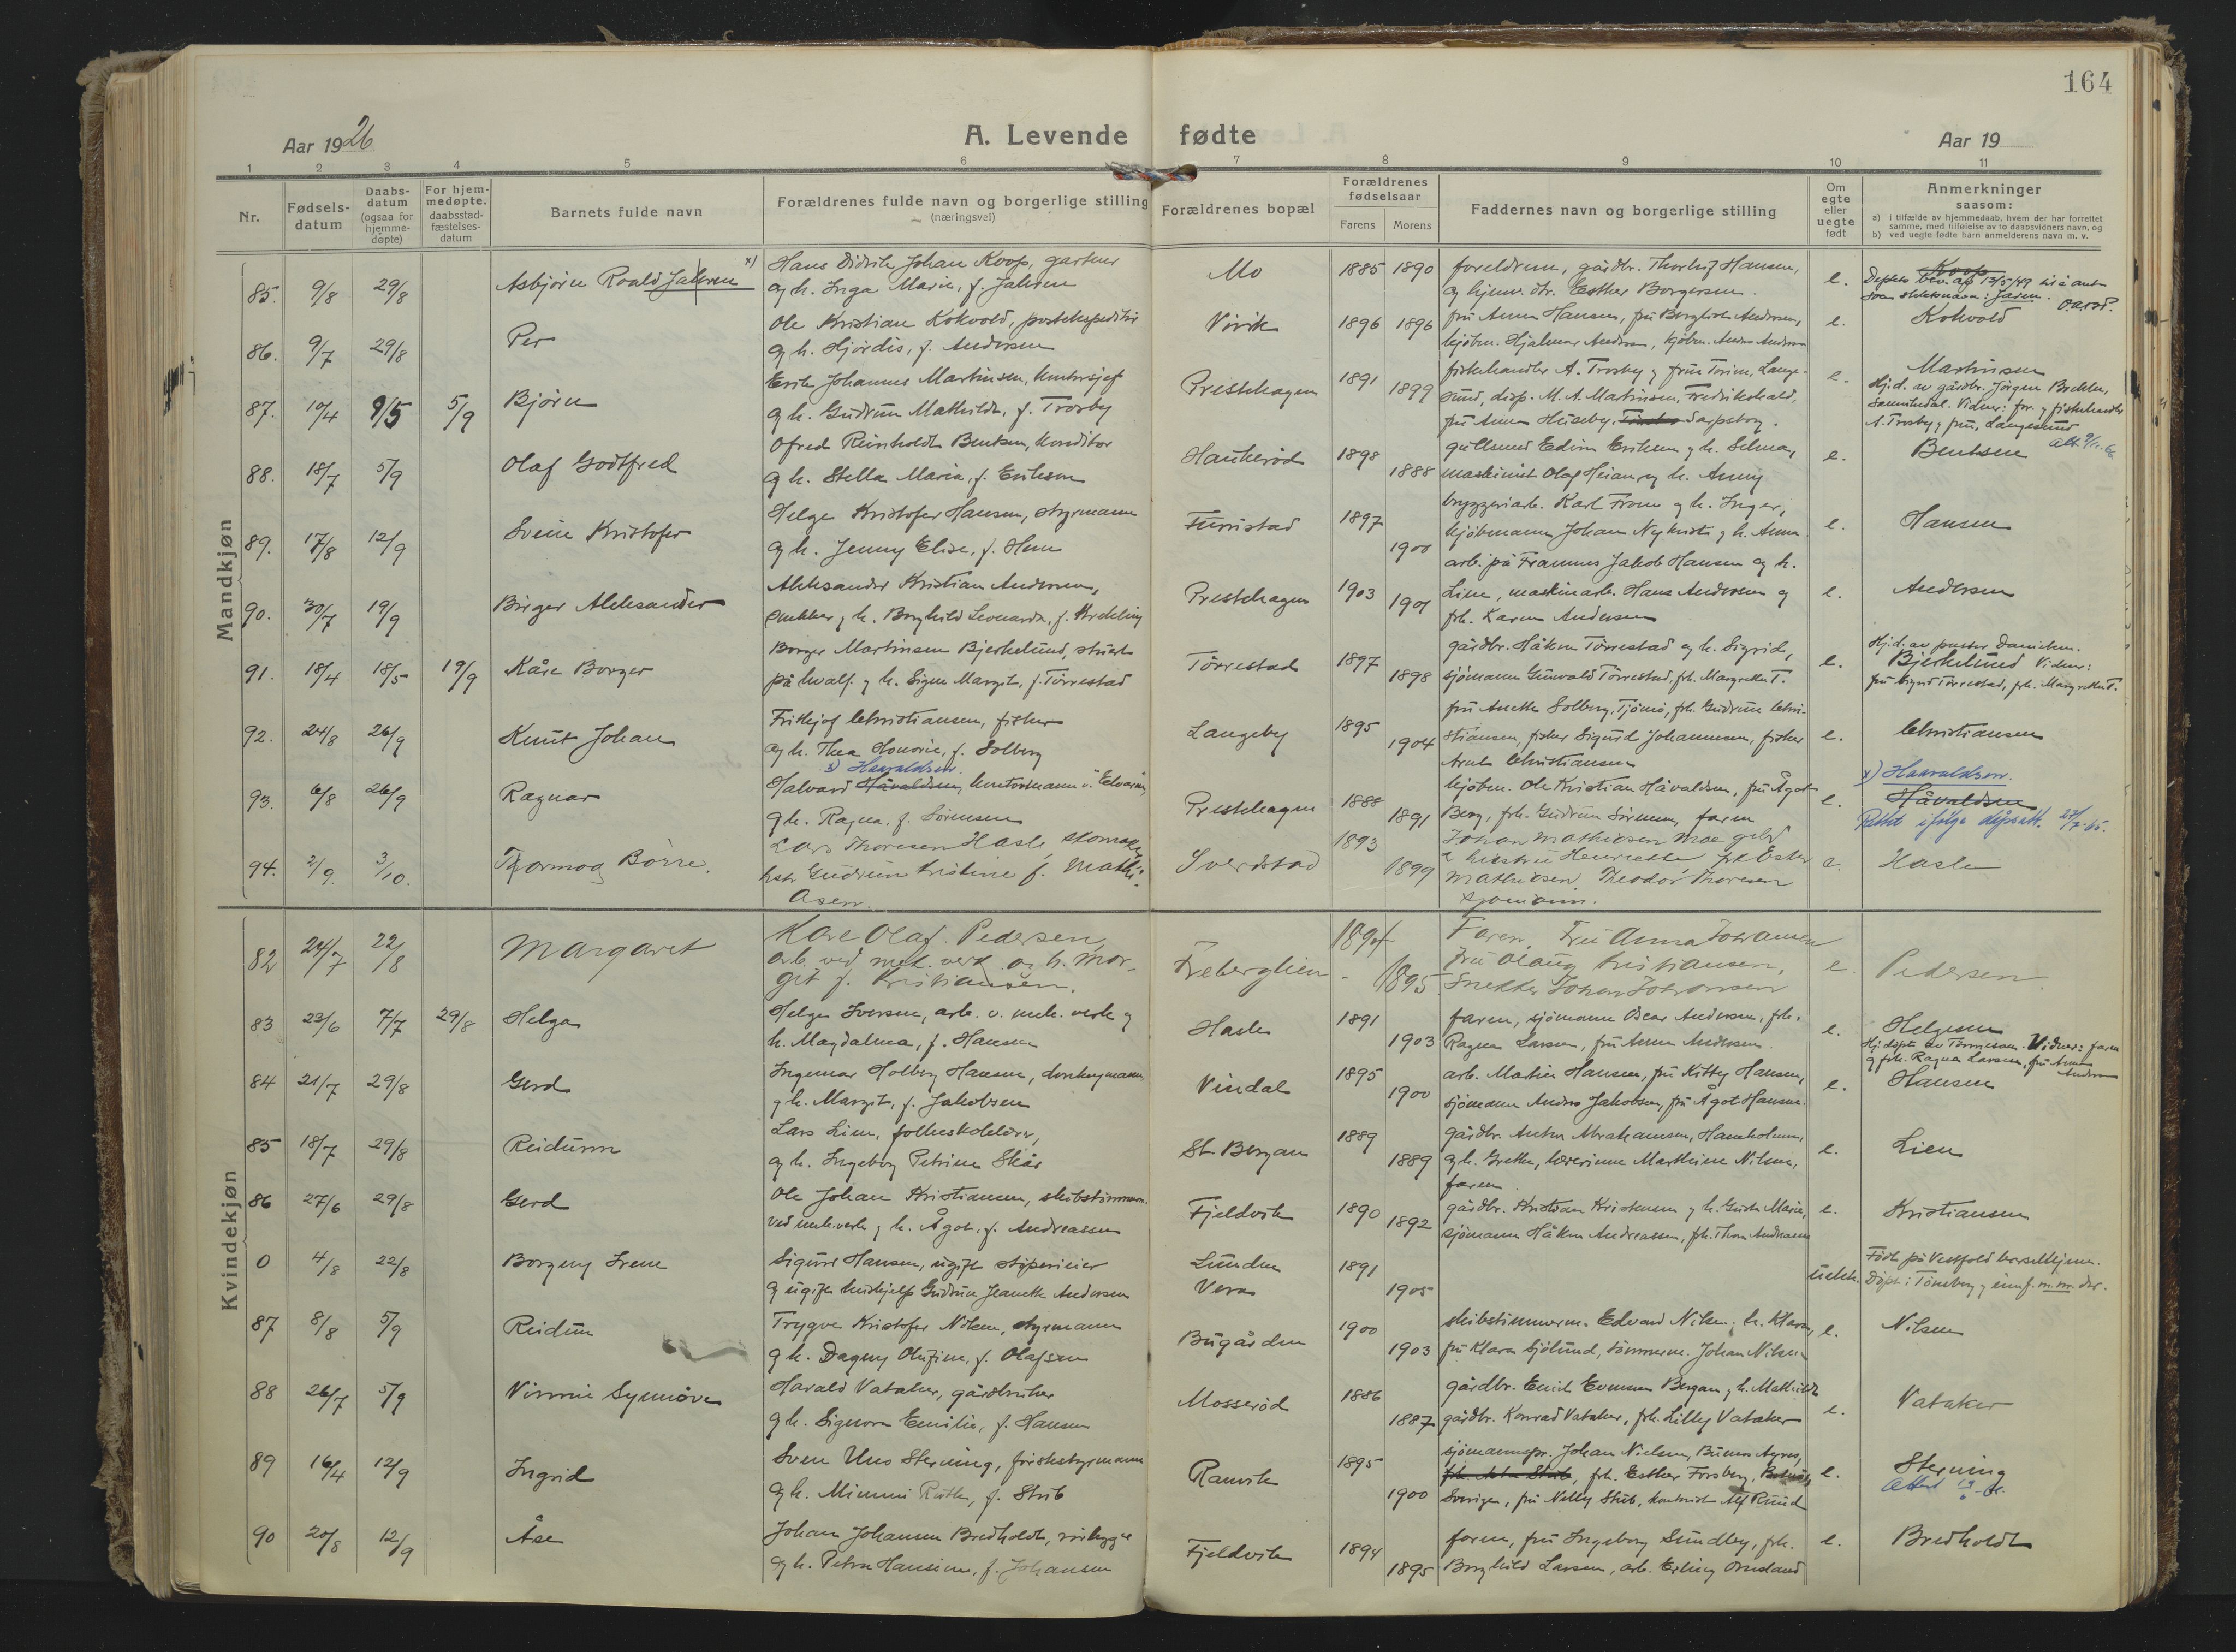 164
Aar 1926
A. Levende fødte
Aar 19
1 2 3 4 5 6 7 8 9 10 11
Nr.
Fødsels-
datum
Daabs-
datum
(ogsaa for
hjemme-
døpte)
For hjem-
medøpte,
daabsstad-
fæstelses-
datum
Barnets fulde navn
Forældrenes fulde navn og borgerlige stilling
(næringsvei)
Forældrenes bopæl
Forældrenes
fødselsaar
Farens Morens
Faddernes navn og borgerlige stilling
Om
egte
eller
uegte
født
Anmerkninger
saasom:
a) i tilfælde av hjemmedaab, hvem der har forrettet
samme, med tilføielse av to daabsvidners navn, og
b) ved uegte fødte barn anmelderens navn m. v.
Mandkjøn
85. 9/8 29/8 Asbjørn Roald Jahren x)
Hans Didrik Johan Koop, gartner
og h. Inga Marie, f. Jahren
Mo 1885 1890
foreldrene, gårdbr. Thorleif Hansen,
og hjemv. dtr. Esther Borgersen.
e.
Koop
Deptets bev. ap 13/5-49 til å anta
som slektsnavn: Jaren.
86. 9/7 29/8 Per
Ole Kristian Kokvold, postekspeditør
og h. Hjørdis, f. Andersen
Virik 1896 1896
fru Anna Hansen, fru Bergliot Andersen,
kjøbm. Hjalmar Andersen, kjøbm. Anders Andersen
e. Kokvold
87. 10/4 9/5 5/9 Bjørn
Erik Johannes Martinsen, kontorsjef
og h. Gudrun Mathilde, f. Trosby
Prestehagen 1891 1899
fiskehandler A. Trosby og frue Torine, Lange-
sund, disp. M. A. Martinsen, Fredrikshald,
fru Anna Huseby, Sarpsborg.
e. Martinsen
Hj.d. av gårdbr. Jørgen Brekke,
Sannidal. Vidner: for. og fiskehandler
A. Trosby og frue, Langesund
88. 18/7 5/9 Olaf Godtfred
Ofred Reinholdt Bentsen, konditor
og h. Stella Maria, f. Eriksen
Haukerød 1898 1888
gullsmed Edvin Eriksen og h. Selma,
maskinist Olaf Heian og h. Anny
e. Bentsen
89. 17/8 12/9 Svein Kristofer
Helge Kristofer Hansen, styrmann
og h. Jenny Elise, f. Hem
Furustad 1897 1900
bryggeriarb. Karl From og h. Inger,
kjøbmann Johan Nykvist og h. Anna
e. Hansen
90. 30/7 19/9 Birger Aleksander
Aleksander Kristian Andersen,
snekker og h. Borghild Leonarda, f. Strekling
Prestehagen 1903 1901
arb. på Framnes Jakob Hansen og h.
Line, maskinarb. Hans Andersen og
frk. Karen Andersen
e. Andersen
91. 18/4 18/5 19/9 Kåre Borger
Borger Martinsen Bjerkelund, stuert
på hvalf. og h. Signe Margit, f. Tørrestad
Tørrestad 1897 1898
gårdbr. Håkon Tørrestad og h. Sigrid,
sjømann Gunvald Tørrestad, frk. Margrethe T.
e.
Hj.d. av pastor Danielsen.
Bjerkelund Vidner:
fru Sigrid Tørrestad, frk. Margrethe T.
92. 24/8 26/9 Knut Johan
Frithjof Christiansen, fisker
og h. Thea Honorie, f. Solberg
Langeby 1895 1904
fru Anette Solberg, Tjømø, frk. Gudrun Chri-
stiansen, fisker Sigurd Johannesen, fisker
Arnt Christiansen
e. Christiansen
93. 6/8 26/9 Ragnar
x) Haavaldsen.
Halvard Håvaldsen, kontormann
og h. Ragna, f. Sørensen
Prestehagen 1888 1891
kjøbm. Ole Kristian Håvaldsen, fru Ågot
Berg, frk. Gudrun Sørensen, faren
e.
x) Haavaldsen.
Håvaldsen
Rettet ifølge dåpsatt. 27/7-65.
94. 2/9. 3/10. Thormod Børre.
Lars Thoresen Hasle, skomaker
hstr Gudrun Kristine f. Mathi-
asen.
Sverdstad 1893 1899
Johan Mathiasen Moe gbr
og hustru Henriette, frk Ester
Mathiasen, Theodor Thoresen
sjømann.
e. Hasle
Kvindekjøn
82 24/7 22/8 Margaret
Kåre Olaf Pedersen,
arb. ved mek. verk. og h. Mar-
git f. Kristiansen.
Freberglien - 1894 1895
Faren, Fru Anna Johansen
Fru Olaug Kristiansen,
Snekker Johan Johansen
e. Pedersen
83 23/6 7/7 29/8 Helga
Helge Iversen, arb. v. mek. verk og
h. Magdalena, f. Hansen
Hasle 1891 1903
faren, sjømann Oscar Andersen, frk.
Ragna Larsen, fru Anna Andersen
e. Helgesen
Hj. døpt av Tønnessen. Vidner: faren
og frk. Ragna Larsen, fru Anna
Andersen
84 21/7 29/8 Gerd
Ingemar Holberg Hansen,
og h. Margit, f. Jakobsen
Vindal 1895 1900
arb. Martin Hansen, fru Kitty Hansen,
sjømann Anders Jakobsen, fru Ågot Hansen.
e. Hansen
85 18/7 29/8 Reidunn
Lars Lien, folkeskolelærer,
og h. Ingeborg Petrine Skår
St. Bergan 1889 1889
Gårdbr. Anton Abrahamsen, Hamholmen,
og h. Grethe, lærerinne Marthine Nilsen,
faren.
e. Lien
86 27/6 29/8 Gerd
Ole Johan Kristiansen, skibstimmerm.
ved mek. verk og h. Ågot, f. Andreassen
Fjeldvik 1890 1892
gårdbr. Kristian Kristensen og h. Marie,
sjømann Håkon Andreassen, frk. Thora Andreassen
e. Kristiansen
0 4/8 22/8 Borgny Irene
Sigurd Hansen, ugift
og ugift hushjelp Gudrun Jeanette Andersen
Lunden
Vera
1891 1905
uekte.
Født på Vestfold barselhjem.
Døpt i Tønsberg og innf. m. nr. der.
87 8/8 5/9 Reidun
Trygve Kristofer Nilsen, styrmann
og h. Dagny Olufine, f. Olafsen
Bugården 1900 1903
skibstimmerm. Edvard Nilsen, h. Klara,
fru Klara Sjølund, tømmerm. Johan Nilsen
e. Nilsen
88 26/7 5/9 Vinnie Synnøve
Harald Vataker, gårdbruker
og h. Signora Emilie, f. Hansen
Mosserød 1886 1887
gårdbr. Emil Evensen Bergan og h. Mathilde
gårdbr. Konrad Vataker, frk. Lilly Vataker
e. Vataker
89 16/4 12/9 Ingrid
Sven Uno Sterning, førstestyrmann
og h. Mimmi Ruth, f. Stub
Ranvik 1895 1900
sjømannspr. Johan Nielsen, Buenos Ayres,
frk. Esther Forsberg,
Sverige, fru Nelly Stub, kontorist Alf Ruud
e. Sterning
90 20/8 12/9 Åse
Johan Johansen Bredholdt, rørlegger
og h. Petra Hansine, f. Johansen
Fjeldvik 1894 1895
faren, fru Ingeborg Sundby, frk.
Borghild Larsen, arb. Erling Ormsland
e. Bredholdt